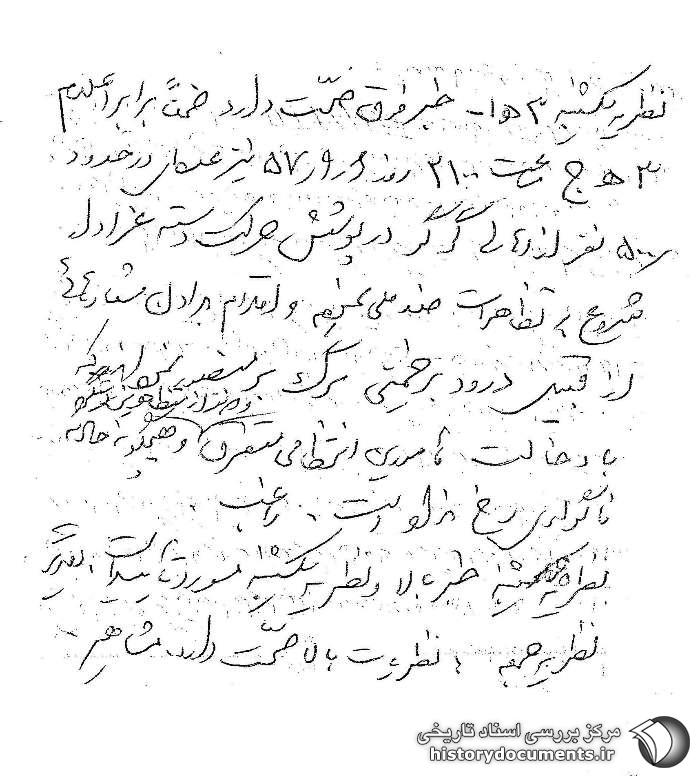 نظریه یکشنبه ۳ ه‍ ۱ـ خبر فوق صحت دارد ضمناً برابر اعلام
۳ ه‍ ج ساعت ۲۱۰۰ روز ۹/ ۵۷ نیز عده‌ای در حدود
۵۰۰ نفر از اهالی گرگر در پوشش حرکت دسته عزادار
شروع به تظاهرات ضد ملی نموده و اقدام به دادن شعارهائی
از قبیل درود بر خمینی مرگ بر نمودند که
با دخالت مامورین انتظامی متفرق و هیچگونه حادثه
ناگواری رخ نداده است. راغب
نظریه سه‌شنبه خبر بالا و نظریه یکشنبه مورد تایید است.
نظریه جمعه: نظریات بالا صحت دارد. مشاهیر
مرکز بررسی اسناد تاریخی
historydocuments.ir